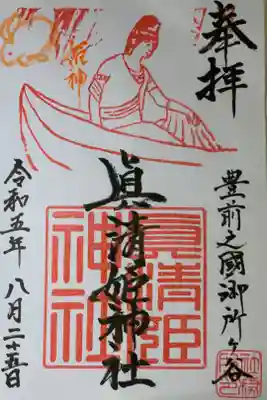 奉拝
豊前之國御所ヶ谷
眞清姫神社
眞清姫
神社
令和五年 八月二十五日